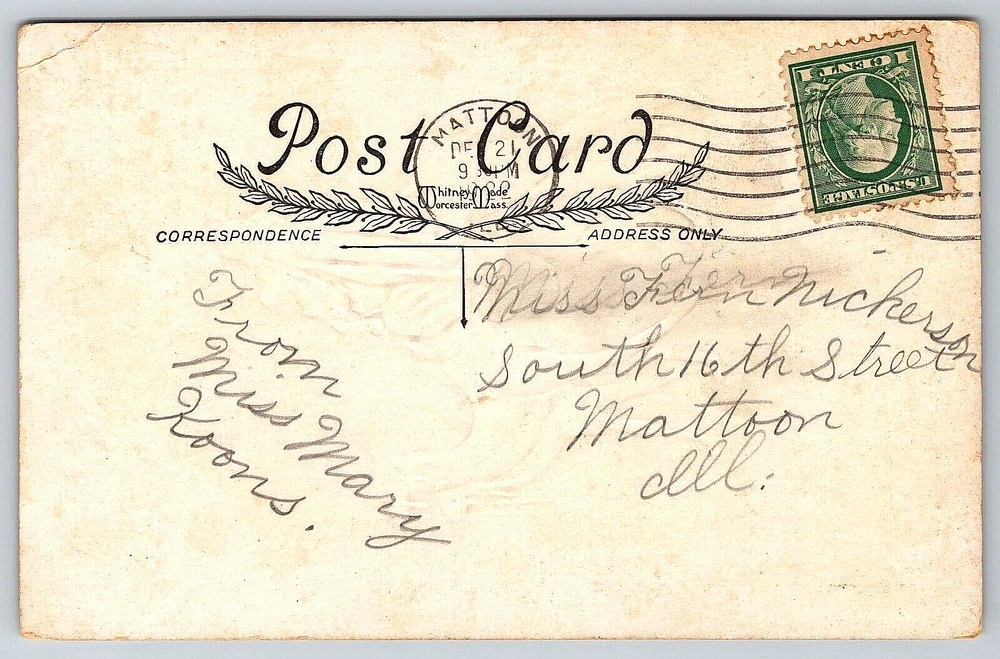 Post Card
MATTOON
DEC 21
9 PM
ILL
Whitney Made
Worcester Mass.
1 CENT 1
U.S. POSTAGE
CORRESPONDENCE
ADDRESS ONLY
From
Miss Mary
Koons.
Miss Fern Nickerson
South 16th Street
Mattoon
Ill.